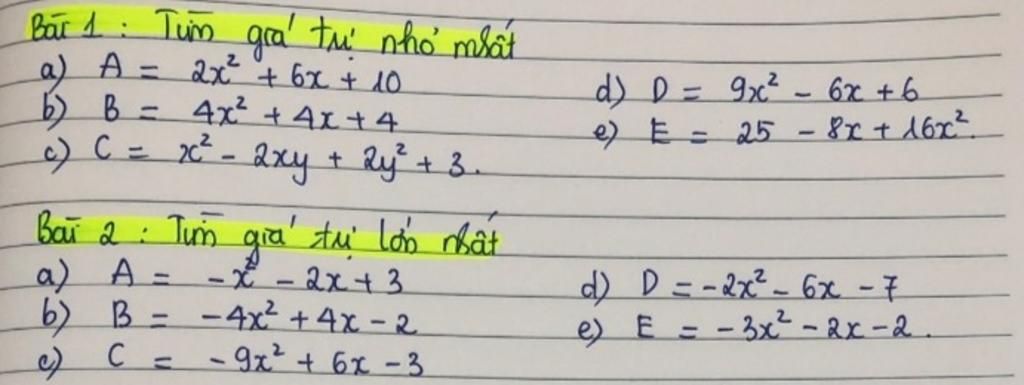 Bài 1 : Tìm giá trị nhỏ nhất
a) A = 2x² + 6x + 10
b) B = 4x² + 4x + 4
c) C = x² - 2xy + 2y² + 3.
d) D = 9x² - 6x + 6
e) E = 25 - 8x + 16x².
Bài 2 : Tìm giá trị lớn nhất
a) A = -x² - 2x + 3
b) B = -4x² + 4x - 2
c) C = -9x² + 6x - 3
d) D = -2x² - 6x - 7
e) E = -3x² - 2x - 2.